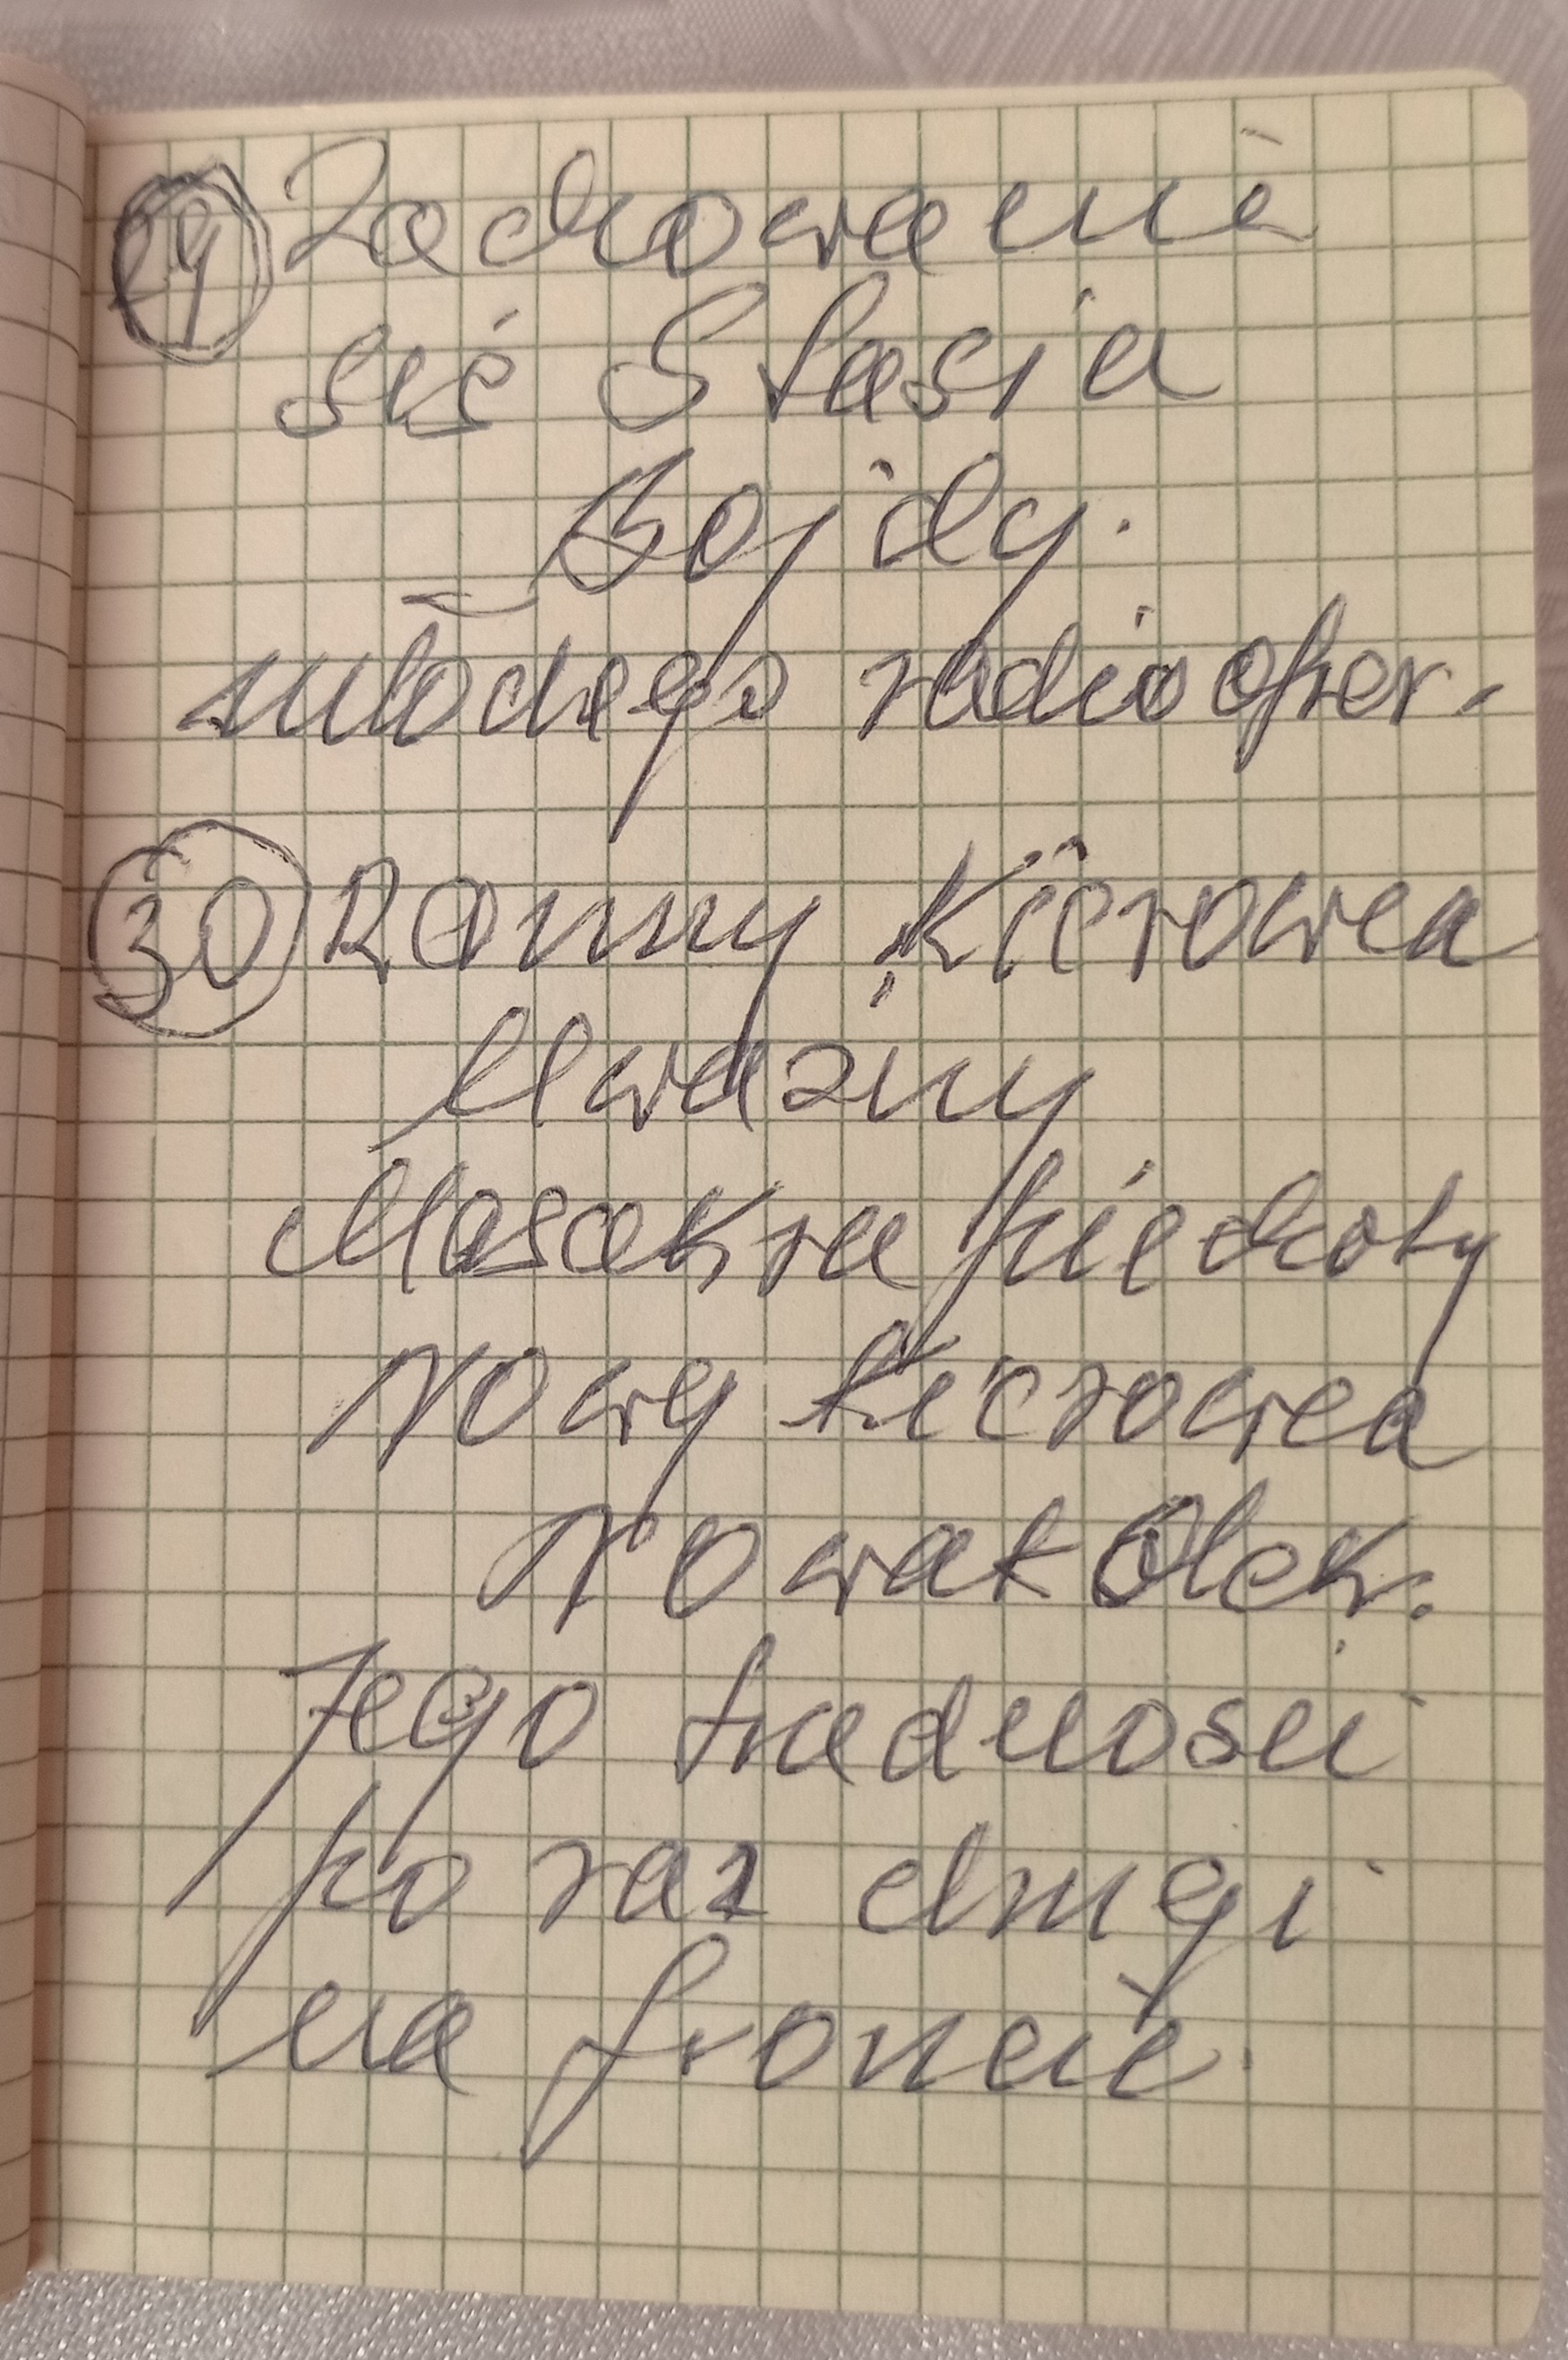 29 Zachowanie
się Stasia
Bojdy.
młodego radiooper.
30 Ranny kierowca
Uważny
Masakra piechoty
Nowy kierowca
Nowak Olek.
Jego trudności
po raz drugi
na froncie.